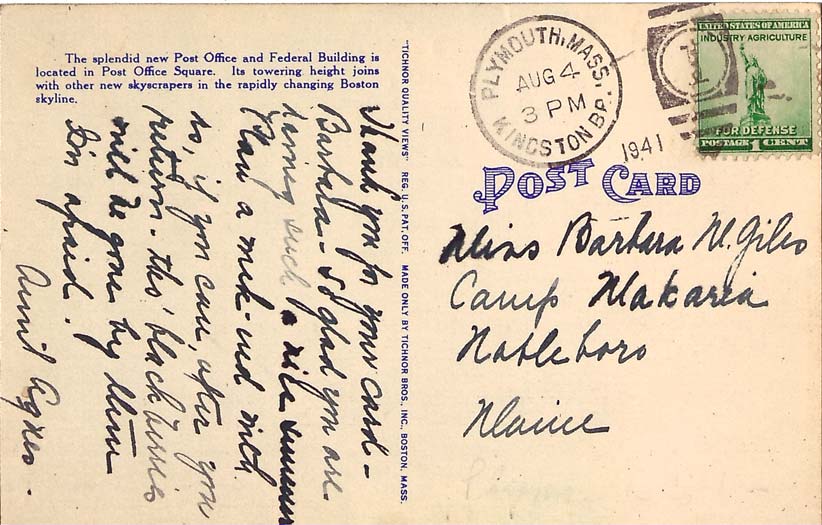 The splendid new Post Office and Federal Building is
located in Post Office Square. Its towering height joins
with other new skyscrapers in the rapidly changing Boston
skyline.
Thank you for your card -
Barbara - So glad you are
having such a nice summer
Plan a week-end with
us, if you can, after you
return - tho' blackberries
will be gone by then
I'm afraid.
Aunt Agnes.
"TICHNOR QUALITY VIEWS" REG. U. S. PAT. OFF. MADE ONLY BY TICHNOR BROS., INC., BOSTON, MASS.
PLYMOUTH, MASS.
AUG 4
3 PM
KINGSTON BR.
1941
UNITED STATES OF AMERICA
INDUSTRY AGRICULTURE
FOR DEFENSE
POSTAGE 1 CENT
POST CARD
Miss Barbara M. Giles
Camp Makaria
Nobleboro
Maine